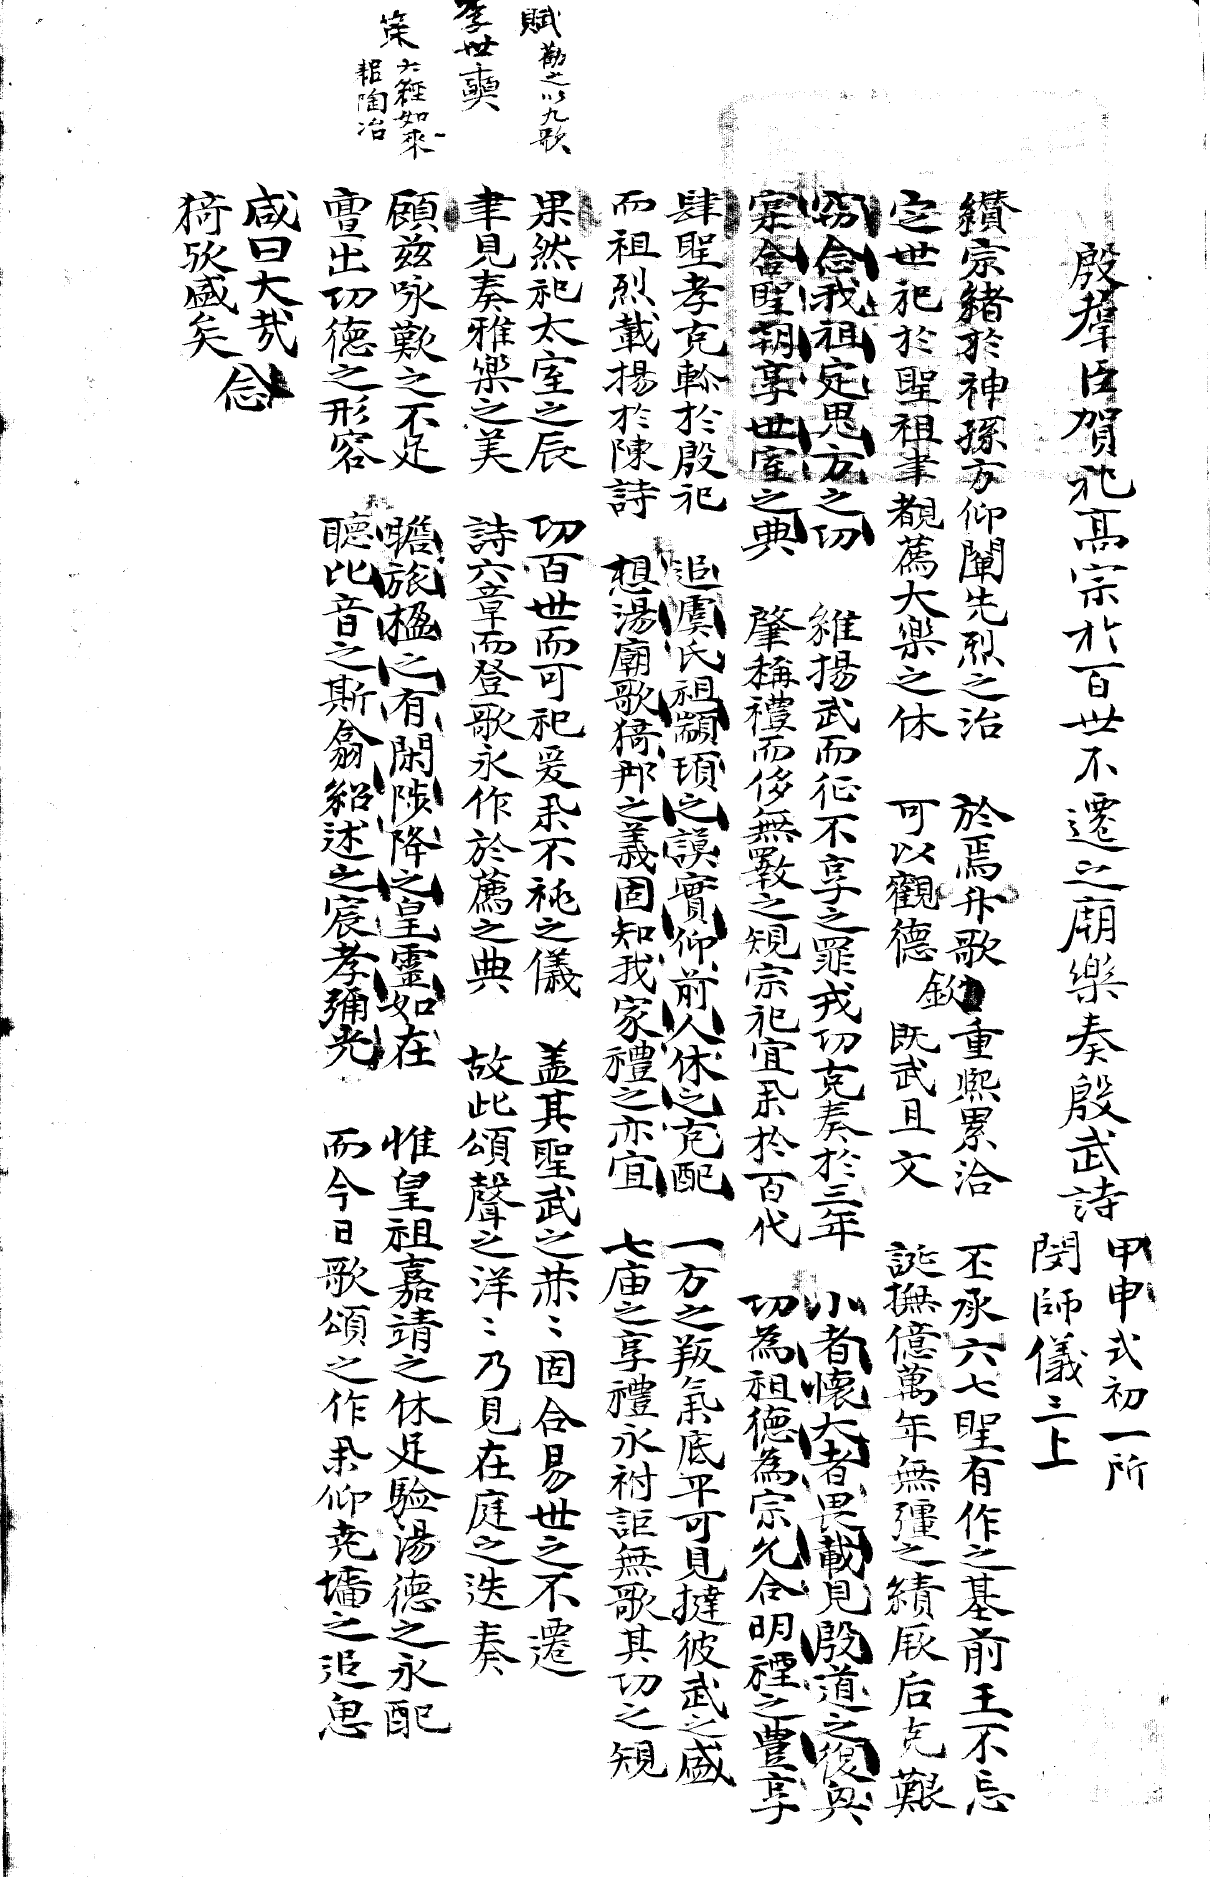 殷群臣賀祀高宗於百世不遷之廟樂奏殷武詩
甲申式初一所
閔師儀三上
纘宗緒於神孫方仰闡先烈之治 於焉升歌 重熙累洽 丕承六七聖有作之基前王不忘
定世祀於聖祖聿覩薦大樂之休 可以觀德 欽 既武且文 誕撫億萬年無疆之績厥后克艱
窃念我祖定鬼方之功 維揚武而征不享之罪戎功克奏於三年 小者懷大者畏載見殷道之復興
寀合聖朝享世室之典 肇稱禮而侈無斁之規宗祀宜采於百代 功為祖德為宗允合明禋之豊享
肆聖孝克軫於殷祀 追虞氏祖顓頊之謨實仰前人休之克配 一方之叛氣底平可見撻彼武之盛
而祖烈載揚於陳詩 想湯廟歌猗那之義固知我家禮之亦宜 七庙之享禮永祔詎無歌其功之規
果然祀太室之辰 功百世而可祀爰采不祧之儀 盖其聖武之恭〻固合易世之不遷
聿見奏雅樂之美 詩六章而登歌永作於薦之典 故此頌聲之洋〻乃見在庭之迭奏
顧玆咏歎之不足 瞻旅楹之有閑陟降之皇靈如在 惟皇祖嘉靖之休足驗湯德之永配
亶出功德之形容 聽比音之斯翕紹述之宸孝彌光 而今日歌頌之作采仰堯墻之追思
咸曰大㢤 念
猗歟盛矣
賦 勸之以九歌
李世奭
策 六經如來
耜陶冶